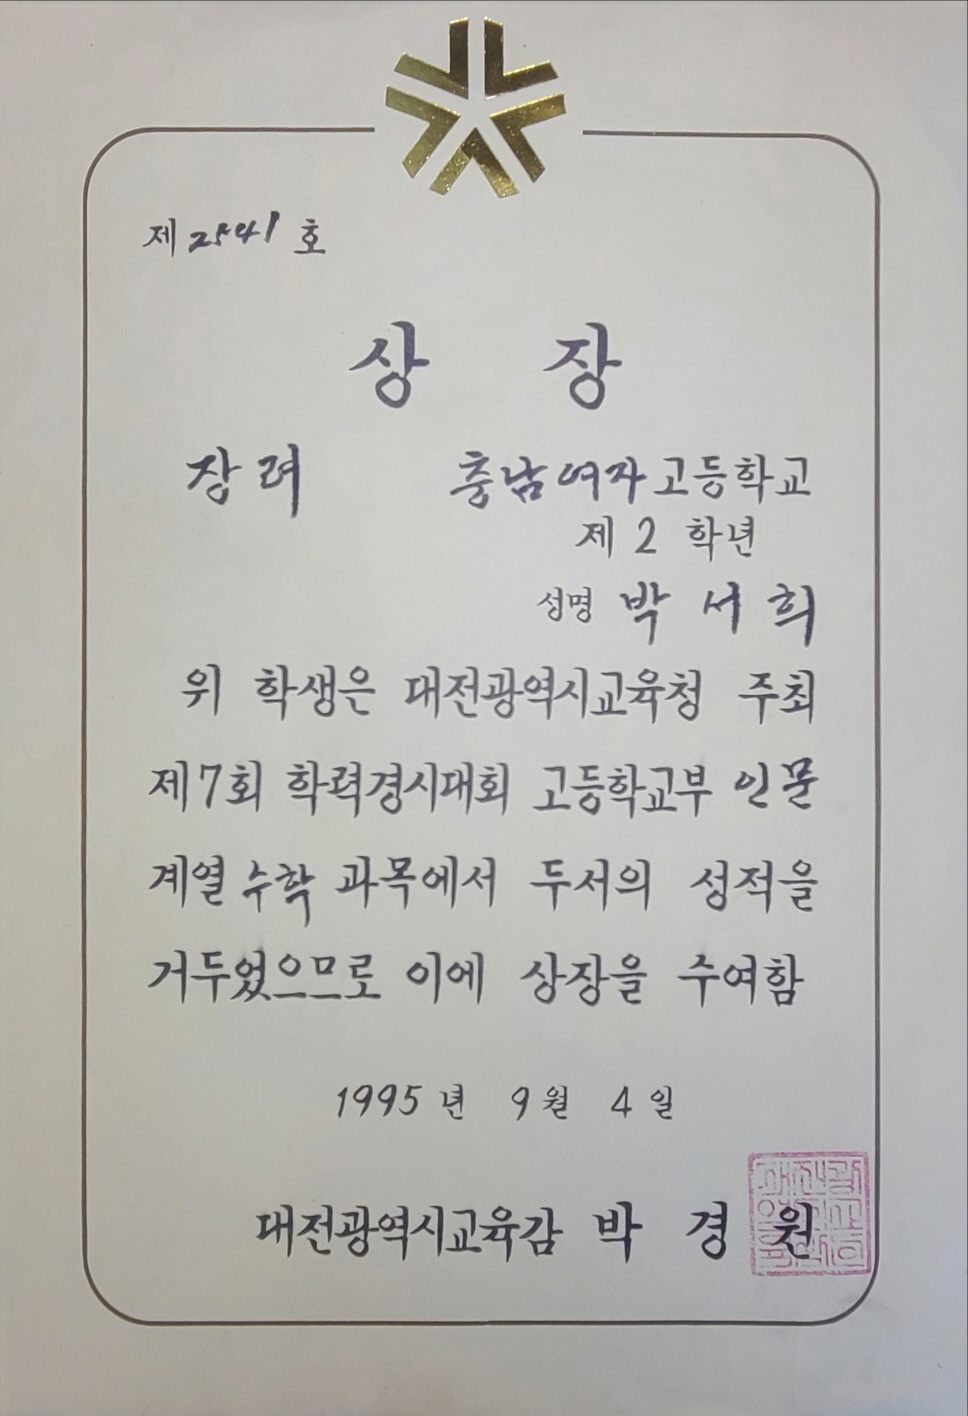 제 2541 호
상 장
장려 충남여자고등학교
제 2 학년
성명 박서희
위 학생은 대전광역시교육청 주최
제7회 학력경시대회 고등학교부 인문
계열 수학 과목에서 두서의 성적을
거두었으므로 이에 상장을 수여함
1995 년 9 월 4 일
대전광역시교육감 박 경 원